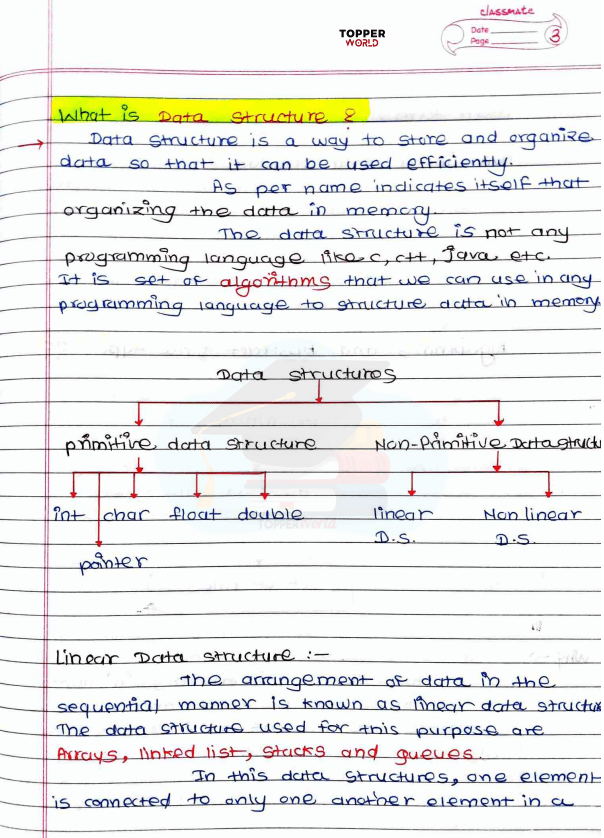 classmate
TOPPER
WORLD
Date
Page 3
What is Data structure ?
Data structure is a way to store and organize
data so that it can be used efficiently.
As per name indicates itself that
organizing the data in memory.
The data structure is not any
programming language like c, c++, Java etc.
It is set of algorithms that we can use in any
programming language to structure data in memory
Data structures
primitive data structure Non-Primitive Datastructu
int char float double linear Non linear
D.S. D.S.
pointer
TOPPERWorld
Linear Data structure :-
The arrangement of data in the
sequential manner is known as linear data structur
The data structure used for this purpose are
Arrays, linked list, stacks and queues.
In this data structures, one element
is connected to only one another element in a